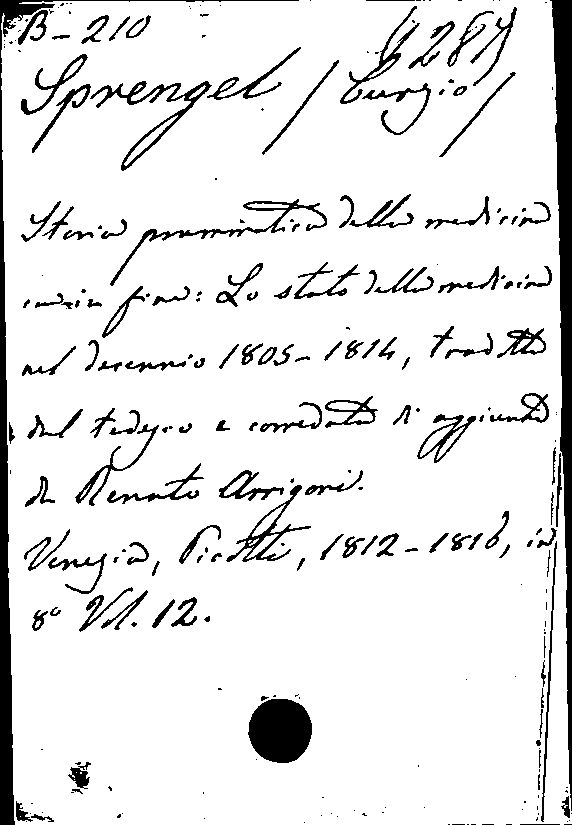 B-210
(1287)
Sprengel / Curzio /
Storia prammatica della medicina
in fine: Lo stato della medicina
nel decennio 1805-1814, tradotta
dal tedesco e corredata di aggiunte
da Renato Arrigoni.
Venezia, Picotti, 1812-1816, in
8° Vol. 12.